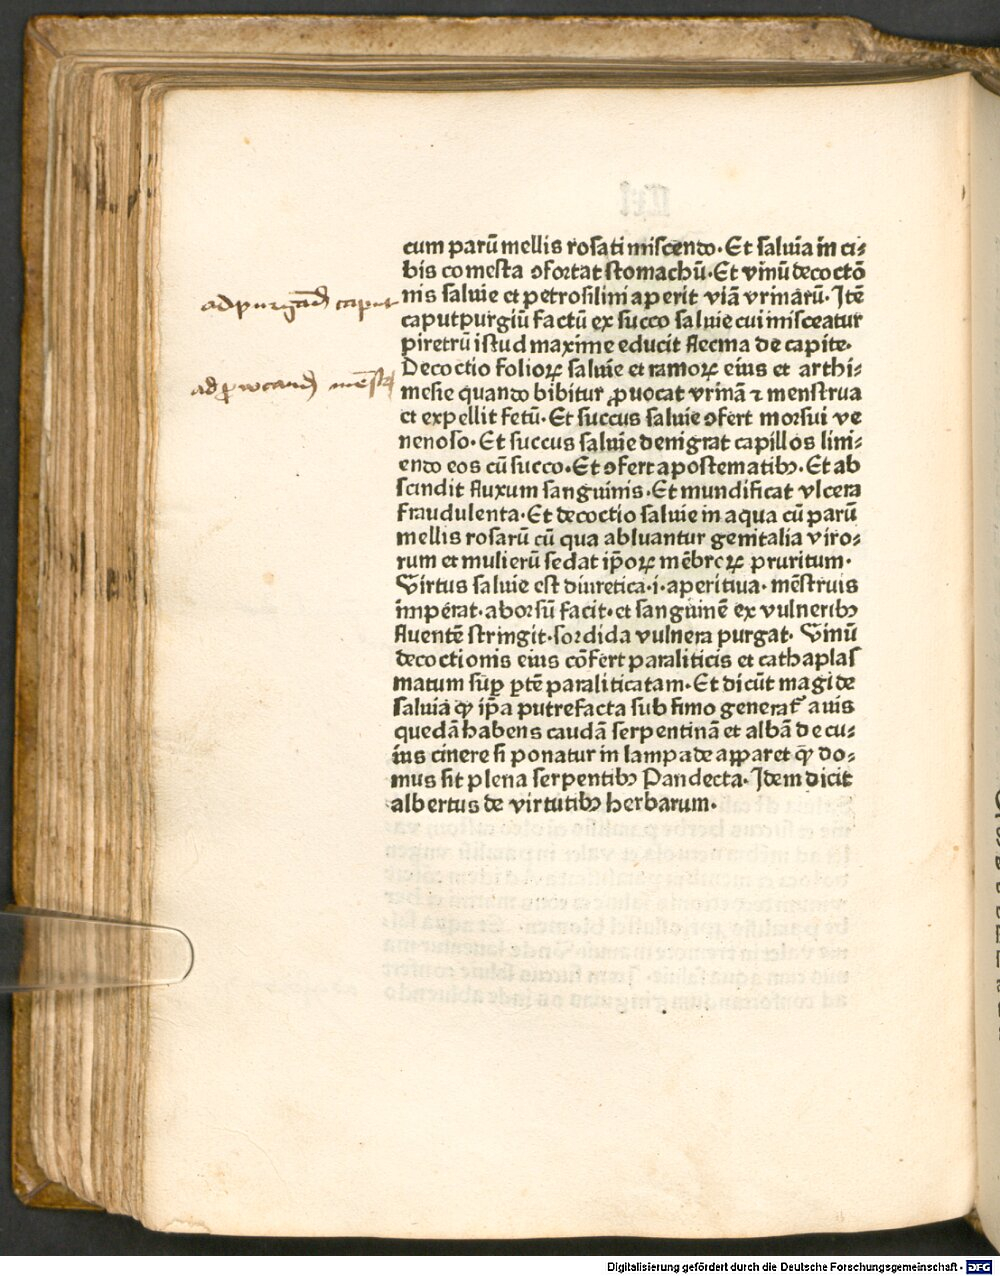 cum parū mellis rosati miscendo. Et saluia in ci⸗
bis comesta ↄfortat stomachū. Et vinū decoctō
nis saluie et petrosilini aperit viā vrinarū. Itē
ad purgand caput
caputpurgiū factū ex succo saluie cui misceatur
piretrū istud maxime educit flecma de capite.
Decoctio folioꝝ saluie et ramoꝝ eius et arthi⸗
ad ꝓuocand mēstr
mesie quando bibitur ꝓuocat vrinā ⁊ menstrua
et expellit fetū. Et succus saluie ↄfert morsui ve
nenoso. Et succus saluie denigrat capillos lini⸗
endo eos cū succo. Et ↄfert apostematibꝫ. Et ab
scindit fluxum sanguinis. Et mundificat vlcera
fraudulenta. Et decoctio saluie in aqua cū parū
mellis rosarū cū qua abluantur genitalia viro⸗
rum et mulierū sedat ip̄oꝝ mēbroꝝ pruritum.
Virtus saluie est diuretica .i. aperitiua. mēstruis
imperat. aborsū facit. et sanguinē ex vulneribꝫ
fluentē stringit. sordida vulnera purgat. Vinū
decoctionis eius cōfert paraliticis et cathaplas
matum suꝑ ꝑtē paraliticatam. Et dicūt magi de
saluia ꝙ ip̄a putrefacta sub fimo generat᷑ auis
quedā habens caudā serpentinā et albā de cu⸗
ius cinere si ponatur in lampade apparet ꝙ do⸗
mus sit plena serpentibꝫ Pandecta. Idem dicit
albertus de virtutibꝫ herbarum.
Digitalisierung gefördert durch die Deutsche Forschungsgemeinschaft - DFG